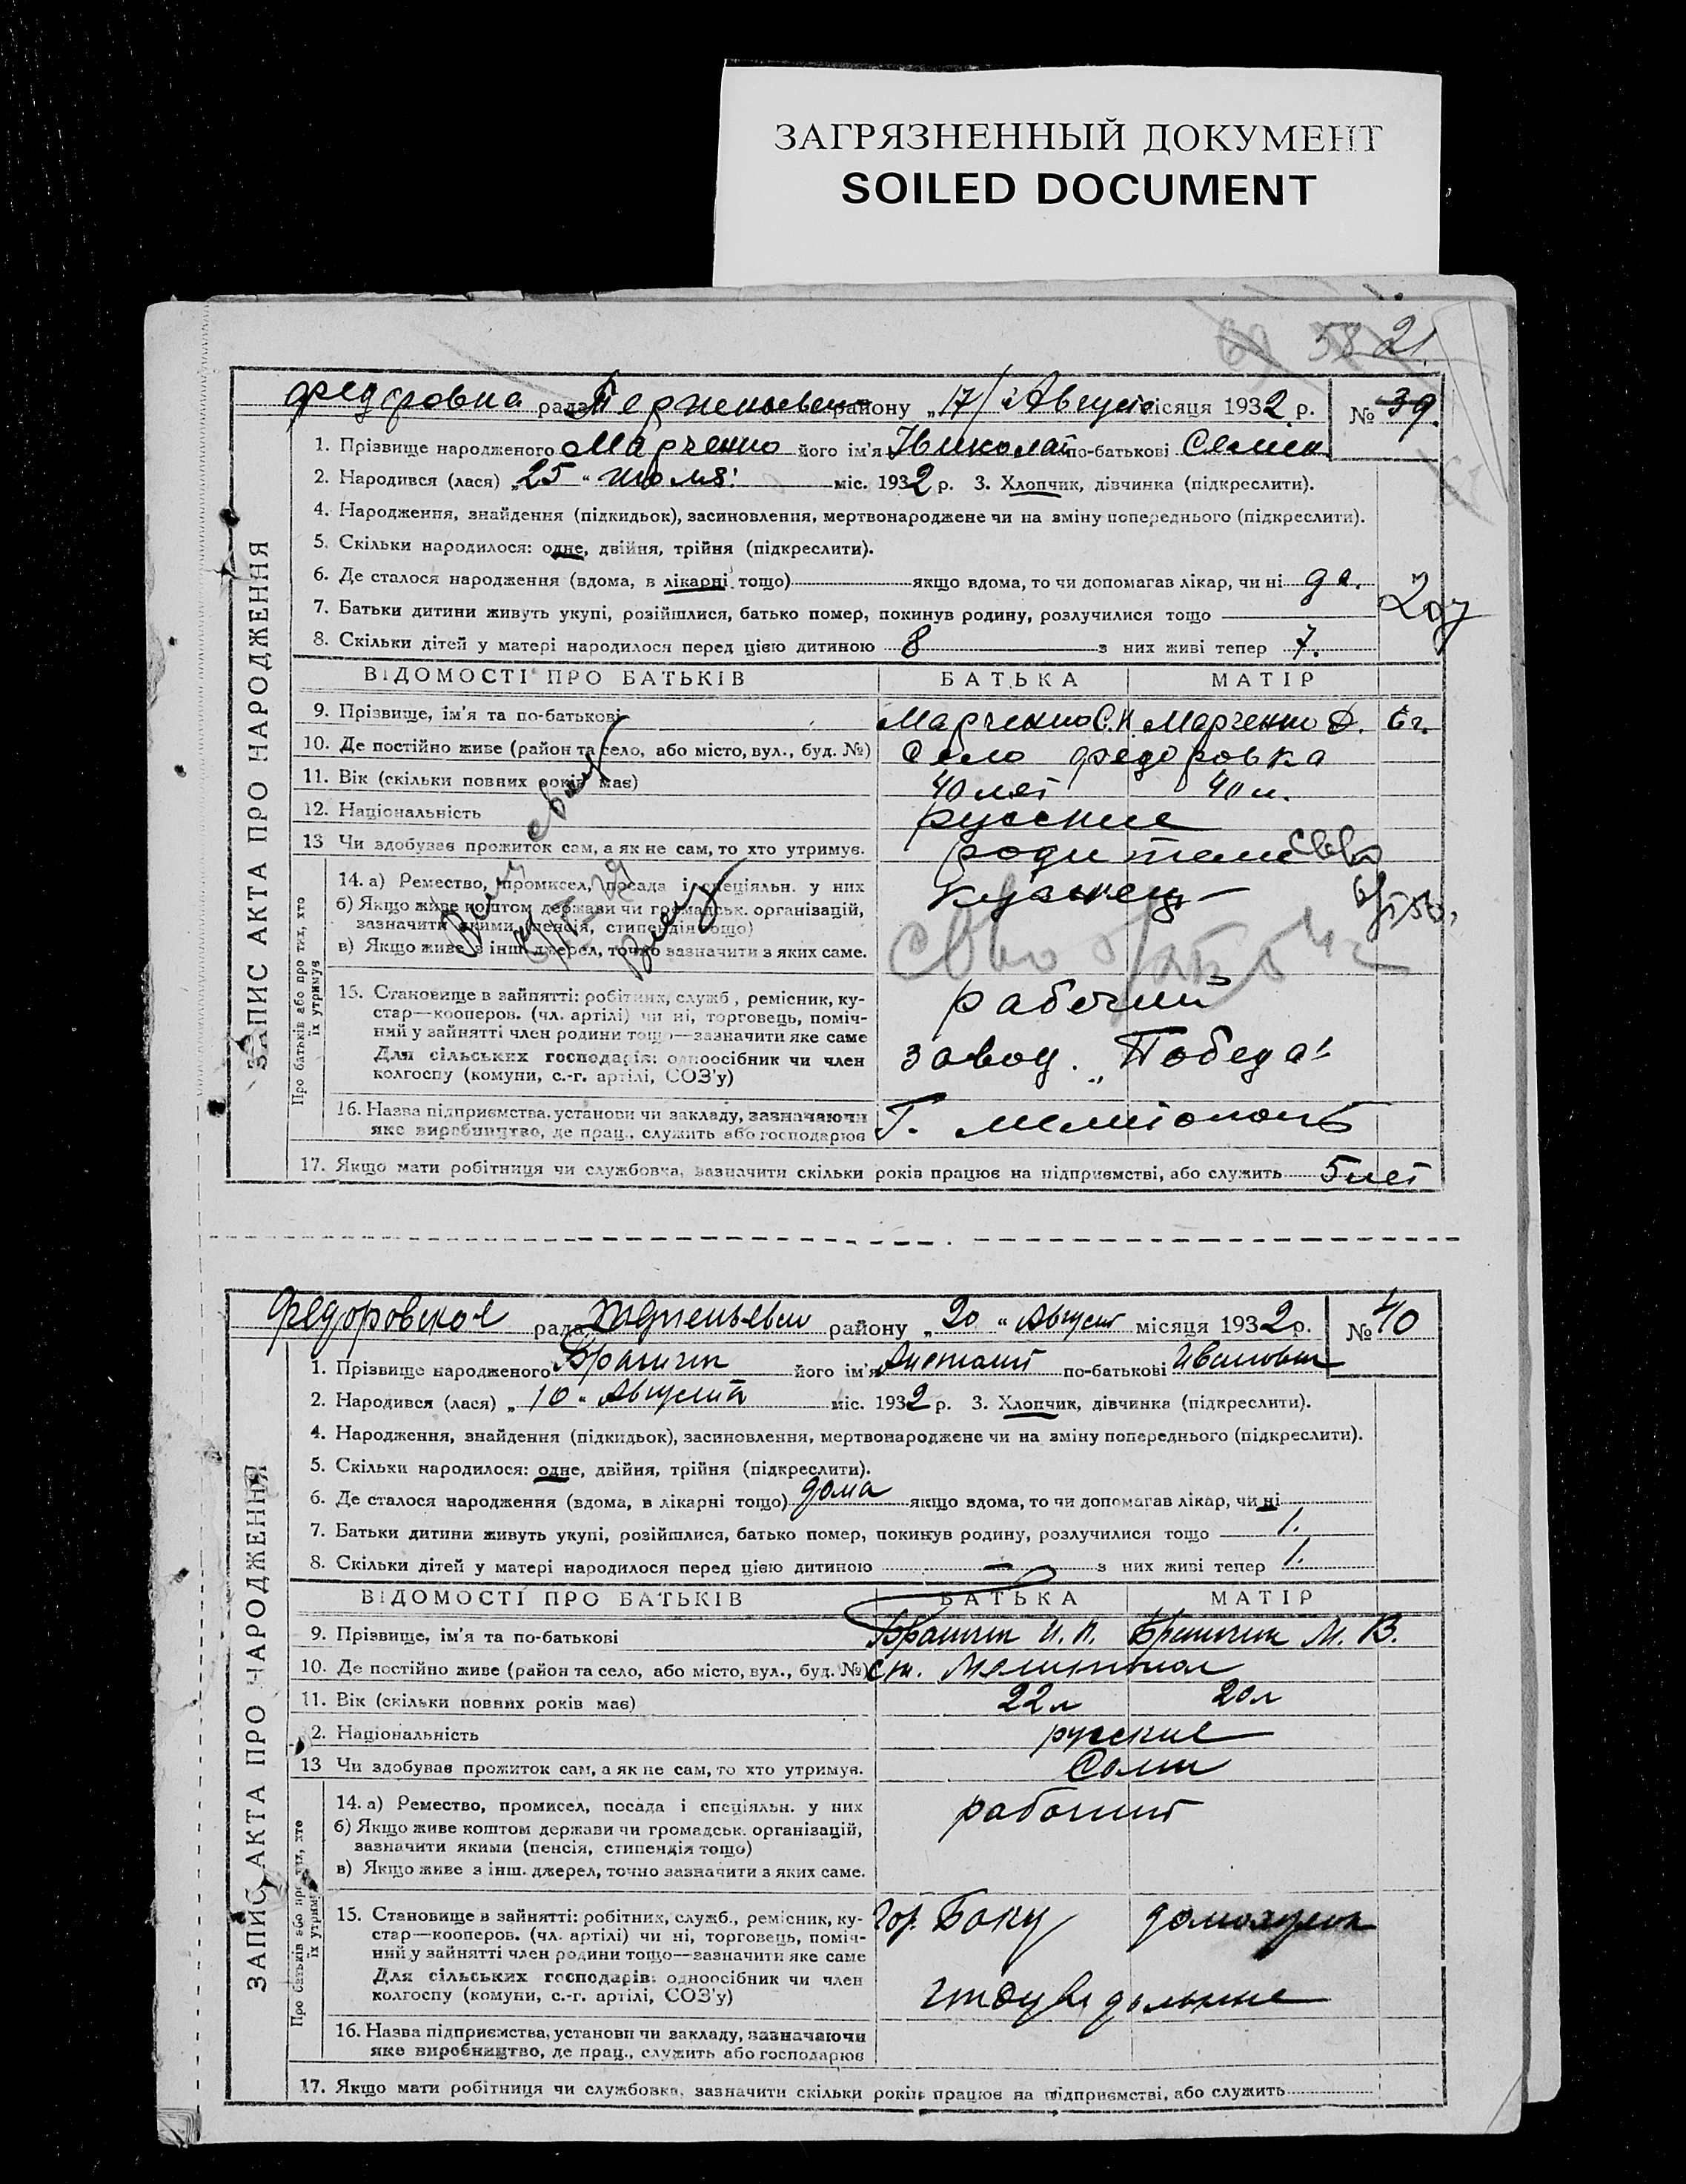 ЗАГРЯЗНЕННЫЙ ДОКУМЕНТ
SOILED DOCUMENT
58 21.
Федоровка рада району „17/ Август місяця 1932 р. № 39.
1. Прізвище народженого Марченко його ім'я Николай по-батькові Семен
2. Народився (лася) „25" июля міс. 1932 р. 3. Хлопчик, дівчинка (підкреслити).
4. Народження, знайдення (підкидьок), засиновлення, мертвонароджене чи на зміну попереднього (підкреслити).
5. Скільки народилося: одне, двійня, трійня (підкреслити).
6. Де сталося народження (вдома, в лікарні тощо) якщо вдома, то чи допомагав лікар, чи ні да.
7. Батьки дитини живуть укупі, розійшлися, батько помер, покинув родину, розлучилися тощо
8. Скільки дітей у матері народилося перед цією дитиною 8 з них живі тепер 7.
ЗАПИС АКТА ПРО НАРОДЖЕННЯ
ВІДОМОСТІ ПРО БАТЬКІВ БАТЬКА МАТІР
9. Прізвище, ім'я та по-батькові Марченко С.И. Марченко Д. Ег.
10. Де постійно живе (район та село, або місто, вул., буд. №) Село Федоровка
11. Вік (скільки повних років має) 40 лет 40 л.
12. Національність русские
13 Чи здобуває прожиток сам, а як не сам, то хто утримує. родители
Про батьків або про тих, хто їх утримує
14. а) Ремество, промисел, посада і спеціяльн. у них кузнец
б) Якщо живе коштом держави чи громадськ. організацій,
зазначити якими (пенсія, стипендія тощо)
в) Якщо живе з інш. джерел, точно зазначити з яких саме.
15. Становище в зайнятті: робітник, служб., ремісник, ку- рабочий
стар—кооперов. (чл. артілі) чи ні, торговець, поміч-
ний у зайнятті член родини тощо—зазначити яке саме
Для сільських господарів: одноосібник чи член завод. „Победа"
колгоспу (комуни, с.-г. артілі, СОЗ'у)
16. Назва підприємства, установи чи закладу, зазначаючи Г. Мелитополь
яке виробництво, де прац., служить або господарює
17. Якщо мати робітниця чи службовка, зазначити скільки років працює на підприємстві, або служить 5 лет
Федоровское рада району „20" Август місяця 1932 р. № 40
1. Прізвище народженого його ім'я Анатолий по-батькові Иванович
2. Народився (лася) „10" Августа міс. 1932 р. 3. Хлопчик, дівчинка (підкреслити).
4. Народження, знайдення (підкидьок), засиновлення, мертвонароджене чи на зміну попереднього (підкреслити).
5. Скільки народилося: одне, двійня, трійня (підкреслити).
6. Де сталося народження (вдома, в лікарні тощо) дома якщо вдома, то чи допомагав лікар, чи ні
7. Батьки дитини живуть укупі, розійшлися, батько помер, покинув родину, розлучилися тощо 1.
8. Скільки дітей у матері народилося перед цією дитиною — з них живі тепер 1.
ЗАПИС АКТА ПРО НАРОДЖЕННЯ
ВІДОМОСТІ ПРО БАТЬКІВ БАТЬКА МАТІР
9. Прізвище, ім'я та по-батькові И. П. М. В.
10. Де постійно живе (район та село, або місто, вул., буд. №) ст. Мелитополь
11. Вік (скільки повних років має) 22 л 20 л
12. Національність русские
13 Чи здобуває прожиток сам, а як не сам, то хто утримує. Сами
Про батьків або про тих, хто їх утримує
14. а) Ремество, промисел, посада і спеціяльн. у них рабочий
б) Якщо живе коштом держави чи громадськ. організацій,
зазначити якими (пенсія, стипендія тощо)
в) Якщо живе з інш. джерел, точно зазначити з яких саме.
15. Становище в зайнятті: робітник, служб., ремісник, ку- гор. Баку
стар—кооперов. (чл. артілі) чи ні, торговець, поміч-
ний у зайнятті член родини тощо—зазначити яке саме
Для сільських господарів: одноосібник чи член
колгоспу (комуни, с.-г. артілі, СОЗ'у)
16. Назва підприємства, установи чи закладу, зазначаючи
яке виробництво, де прац., служить або господарює
17. Якщо мати робітниця чи службовка, зазначити скільки років працює на підприємстві, або служить